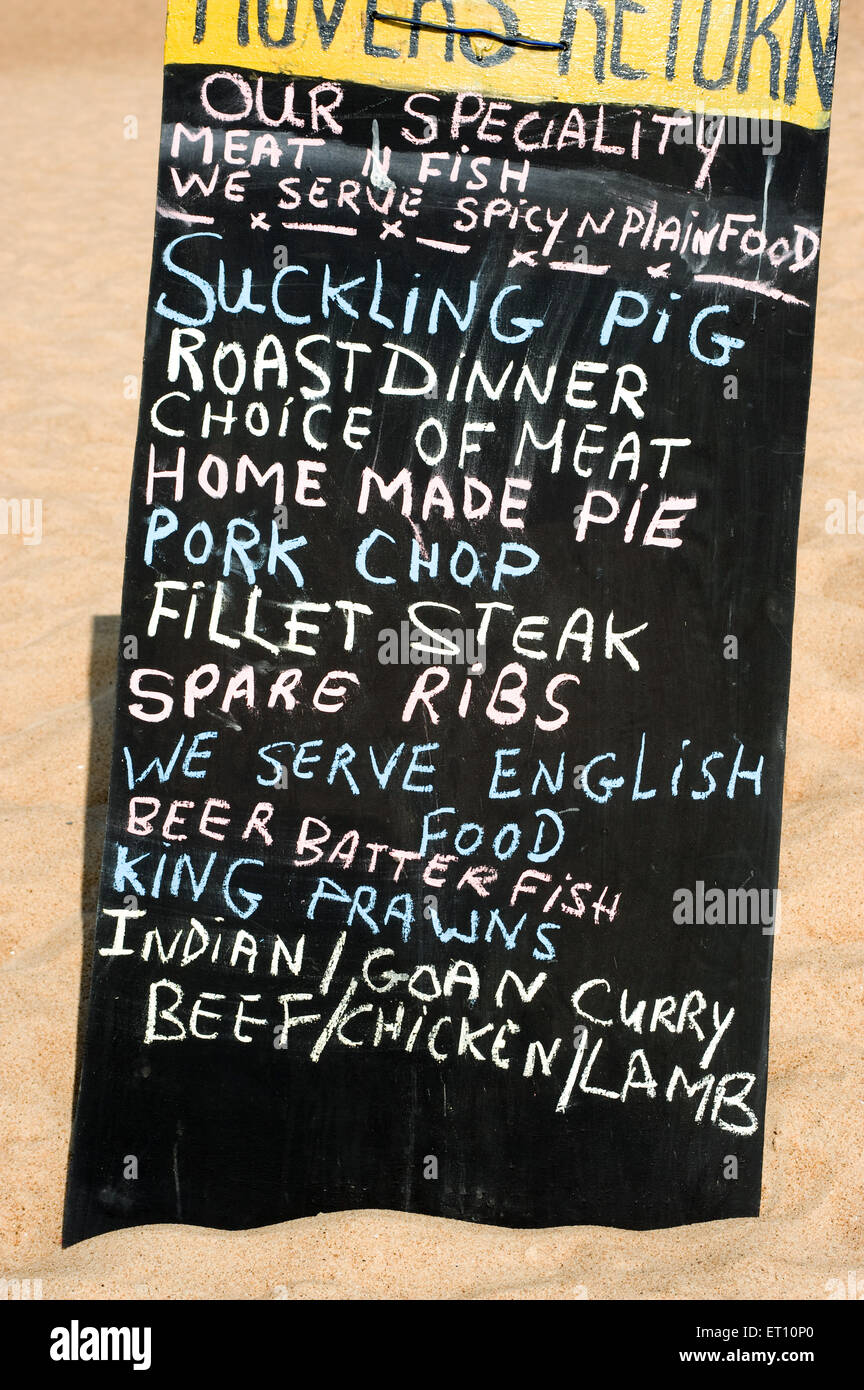 ROVERS RETURN
OUR SPECIALITY
MEAT N FISH
WE SERVE SPICY N PLAIN FOOD
SUCKLING PIG
ROAST DINNER
CHOICE OF MEAT
HOME MADE PIE
PORK CHOP
FILLET STEAK
SPARE RIBS
WE SERVE ENGLISH
FOOD
BEER BATTER FISH
KING PRAWNS
INDIAN/GOAN CURRY
BEEF/CHICKEN/LAMB
alamy
Image ID: ET10P0
www.alamy.com